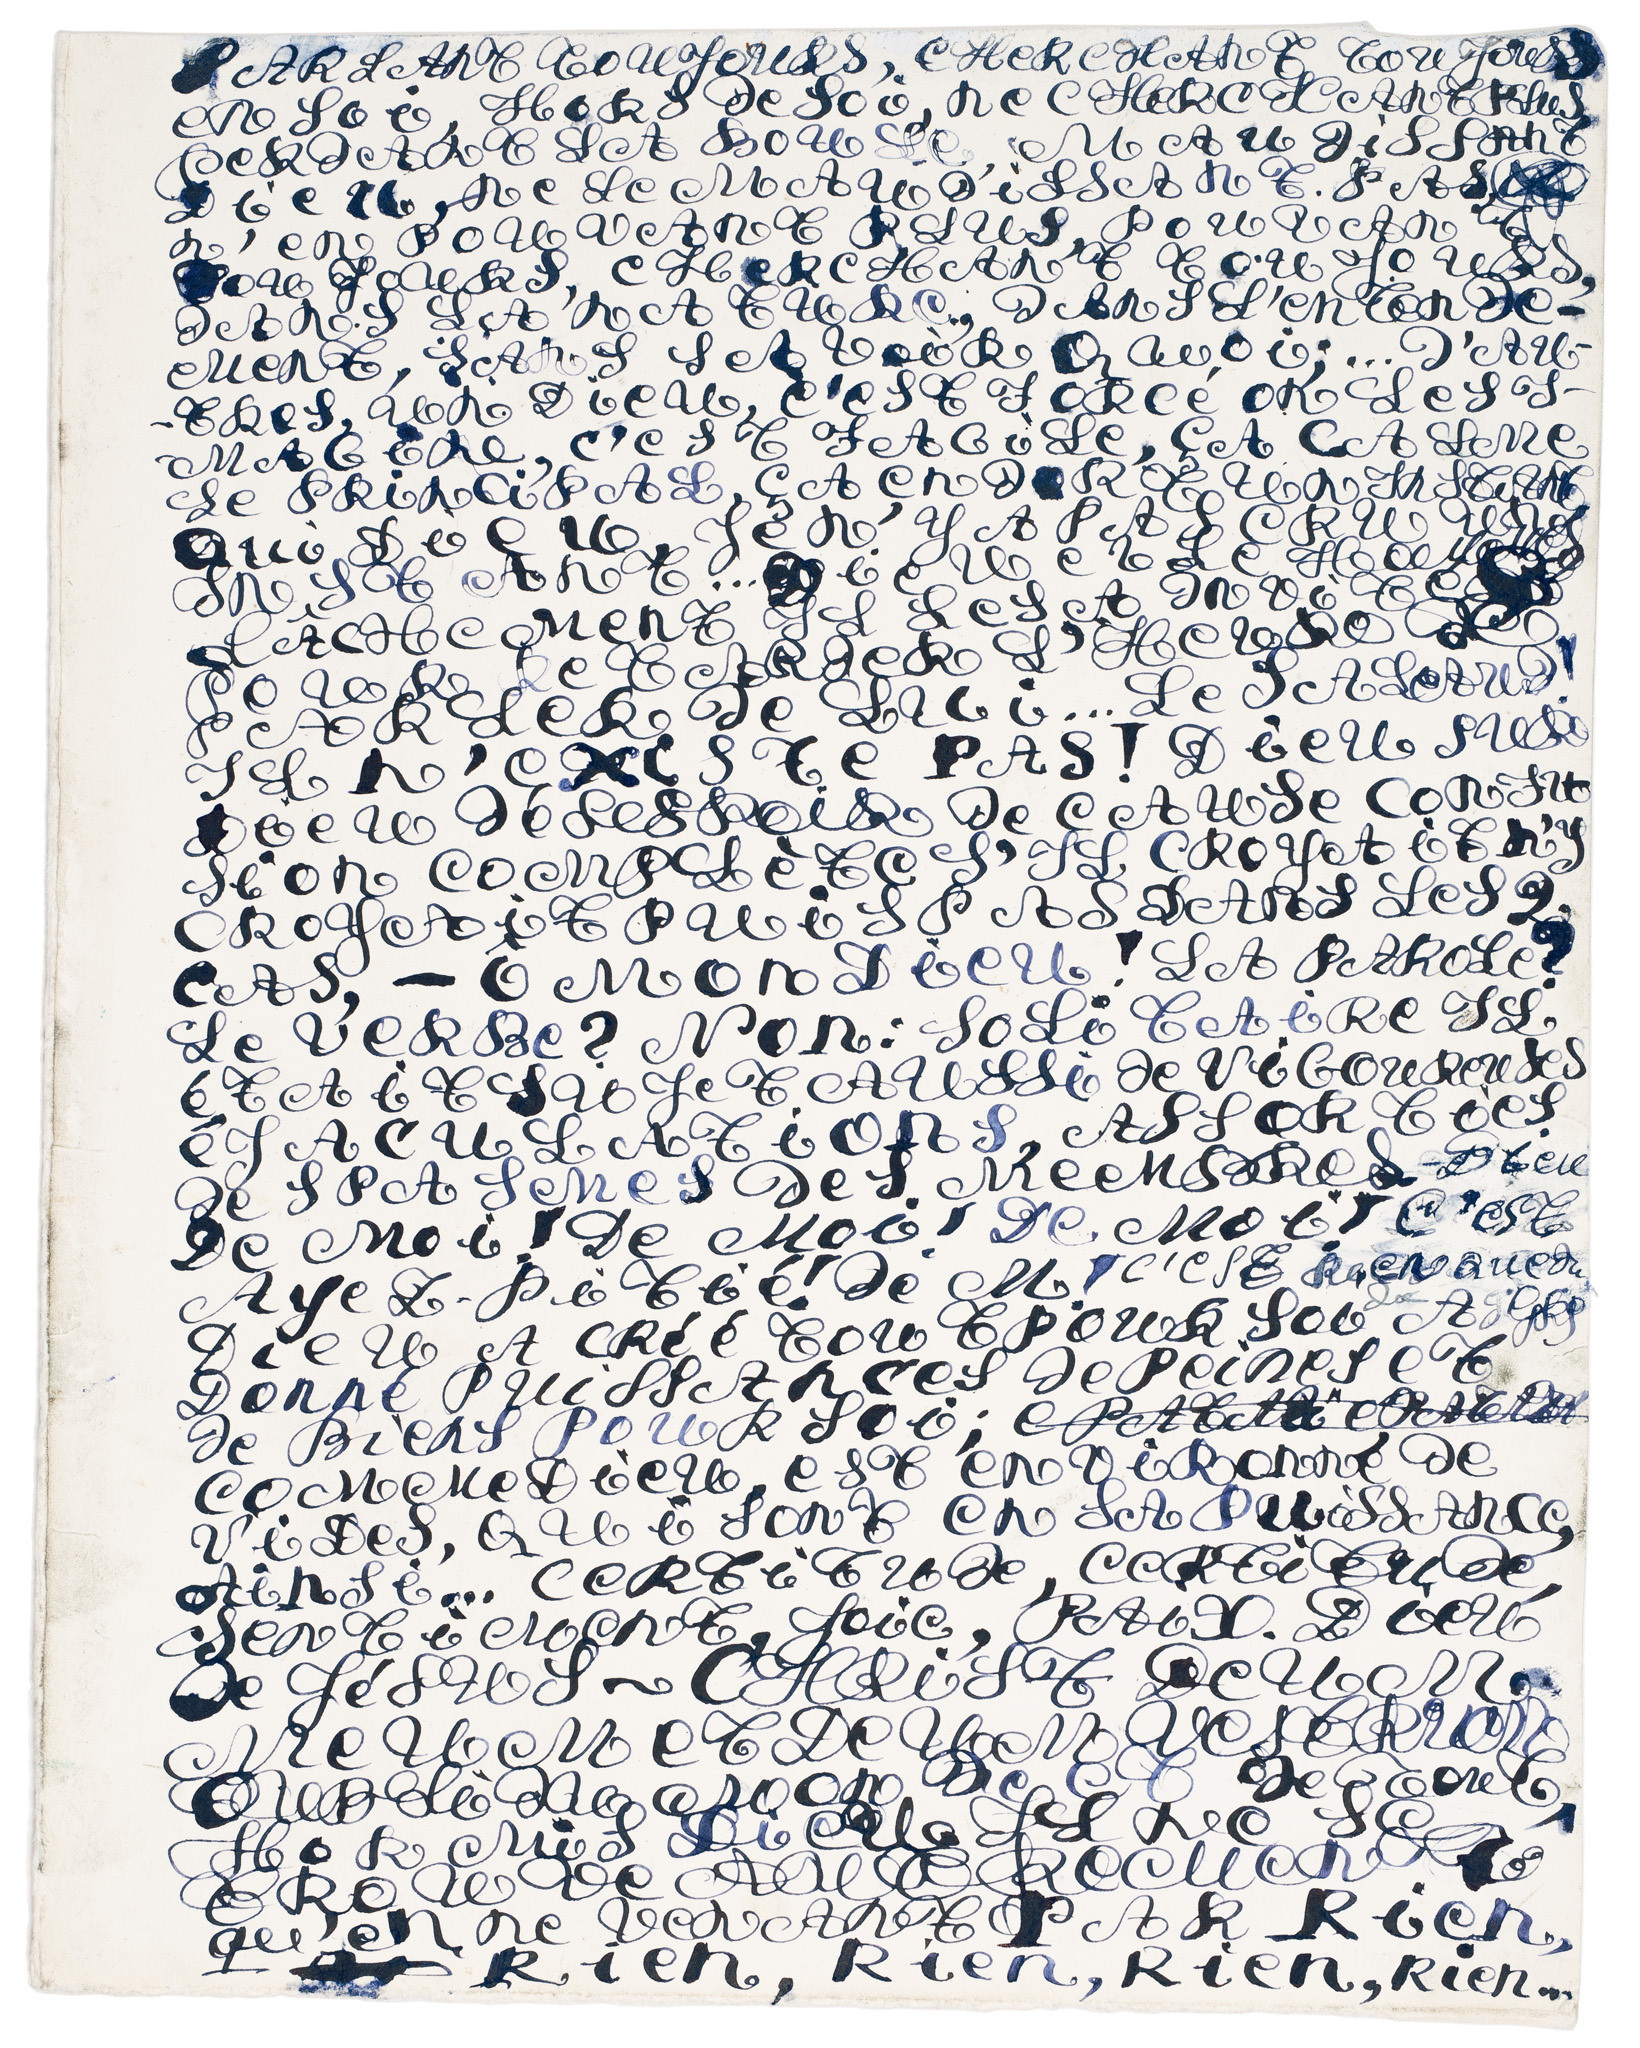 PARLANT TOUJOURS, CHERCHANT TOUJOURS
EN SOI, HORS DE SOI, NE CHERCHANT PLUS,
PERDANT LA BOUSSE, MAUDISSANT
DIEU, NE LE MAUDISSANT PAS,
N'EN POUVANT PLUS, POUVANT
TOUJOURS, CHERCHANT TOUJOURS,
DANS LA NATURE, DANS L'ENTENDE-
MENT, SANS SAVOIR QUOI;... D'AU-
-TRES, UN DIEU, C'EST FORCÉ OR LES I-
MAGINE, C'EST FACILE, ÇA CALME
LE PRINCIPAL, ÇA ENDORT UN INSTANT
QUI DIEU, JE N'Y AI PAS CRU UN
INSTANT... DIEU EN LE
LÂCHEMENT IL LES A INVITÉ
POUR RETARDER L'HEURE DE
PARLER DE LUI... LE SALAUD!
IL N'EXISTE PAS! DIEU SUR
DIEU DÉSESPOIR DE CAUSE CONFU
SION COMPLÈTE S'IL CROYAIT N'Y
CROYAIT PUIS PAS DANS LES 2
CAS, — O MON DIEU! LA PAROLE?
LE VERBE? NON: SOLITAIRE IL
ÉTAIT SUJET AUSSI DE VIGOUREUSES
ÉJACULATIONS, ASSORTIES
DE SPASMES DES MEMBRES DIEU
DE MOI! DE MOI! DE MOI! C'EST
AYEZ-PITIÉ! DE M.! C'EST RIEN QUE DU
DIEU A CRÉÉ TOUT POUR SOI A
DONNÉ PUISSANCES DE PEINES ET
DE BIENS POUR SOI;
COMME DIEU, EST ENVIRONNÉ DE
VIDES, QUI SONT EN SA PUISSANCE,
AINSI... CERTITUDE, CERTITUDE,
SENTIMENT, JOIE, PAIX. DIEU
DE JÉSUS~CHRIST DEUM
MEUM ET DEUM VESTRUM
OUBLI DU MONDE ET DE TOUT,
HORMIS DIEU IL NE SE
TROUVE AUTREMENT
QU'EN NE VENANT PAR RIEN,
RIEN, RIEN, RIEN, RIEN...